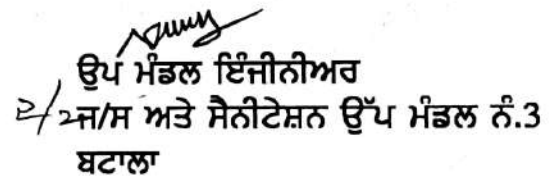 ਉਪ ਮੰਡਲ ਇੰਜੀਨੀਅਰ
ਜ/ਸ ਅਤੇ ਸੈਨੀਟੇਸ਼ਨ ਉੱਪ ਮੰਡਲ ਨੰ.3
ਬਟਾਲਾ